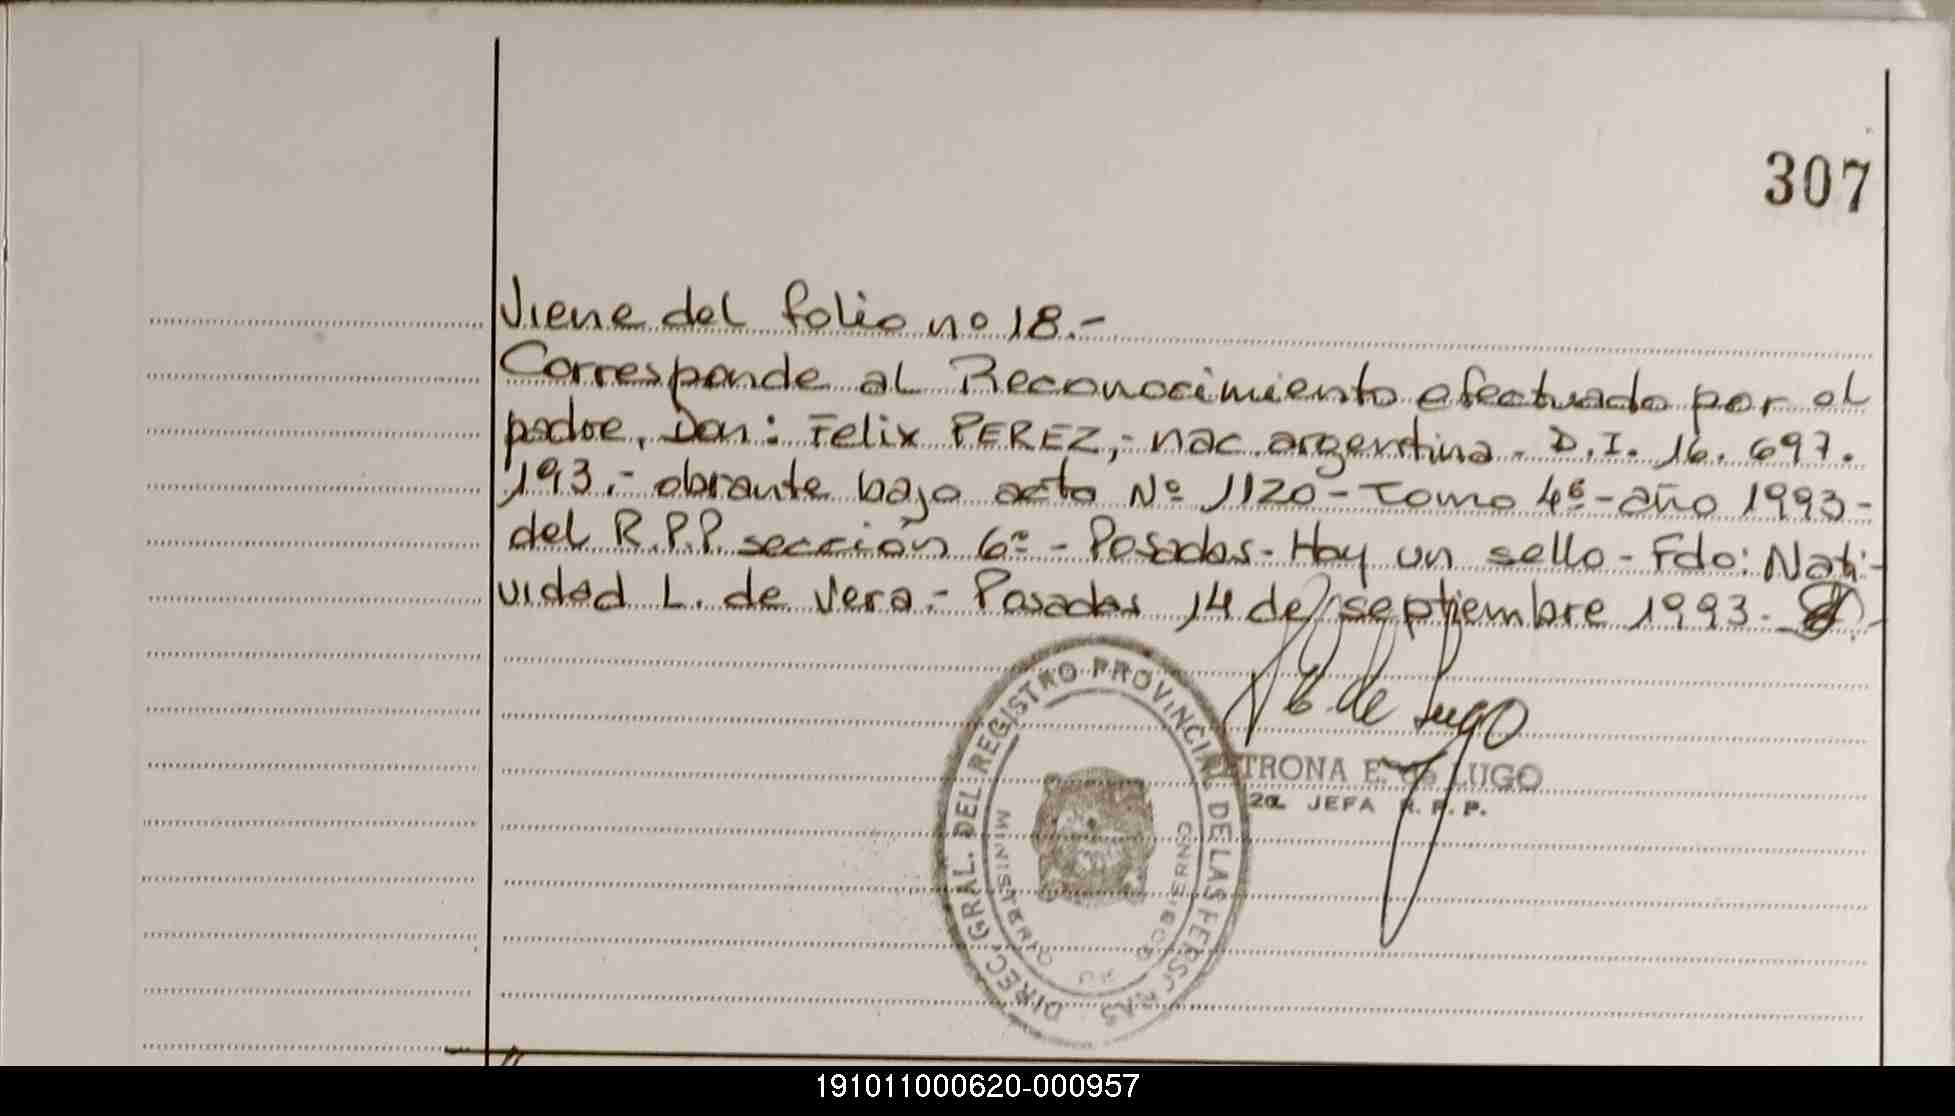 307
Viene del folio nº 18.-
Corresponde al Reconocimiento efectuado por el
padre, Don: Felix PEREZ,- nac. argentina. D.I. 16.697.
193.- obrante bajo acta Nº 1120 - Tomo 4º - año 1993 -
del R.P.P. sección 6º - Posadas - Hay un sello - Fdo: Nati-
vidad L. de Vera.- Posadas 14 de septiembre 1993.-
de Lugo
TRONA E. de LUGO
2a JEFA R.P.P.
DIREC. GRAL. DEL REGISTRO PROVINCIAL DE LAS PERSONAS
MINISTERIO DE GOBIERNO
191011000620-000957